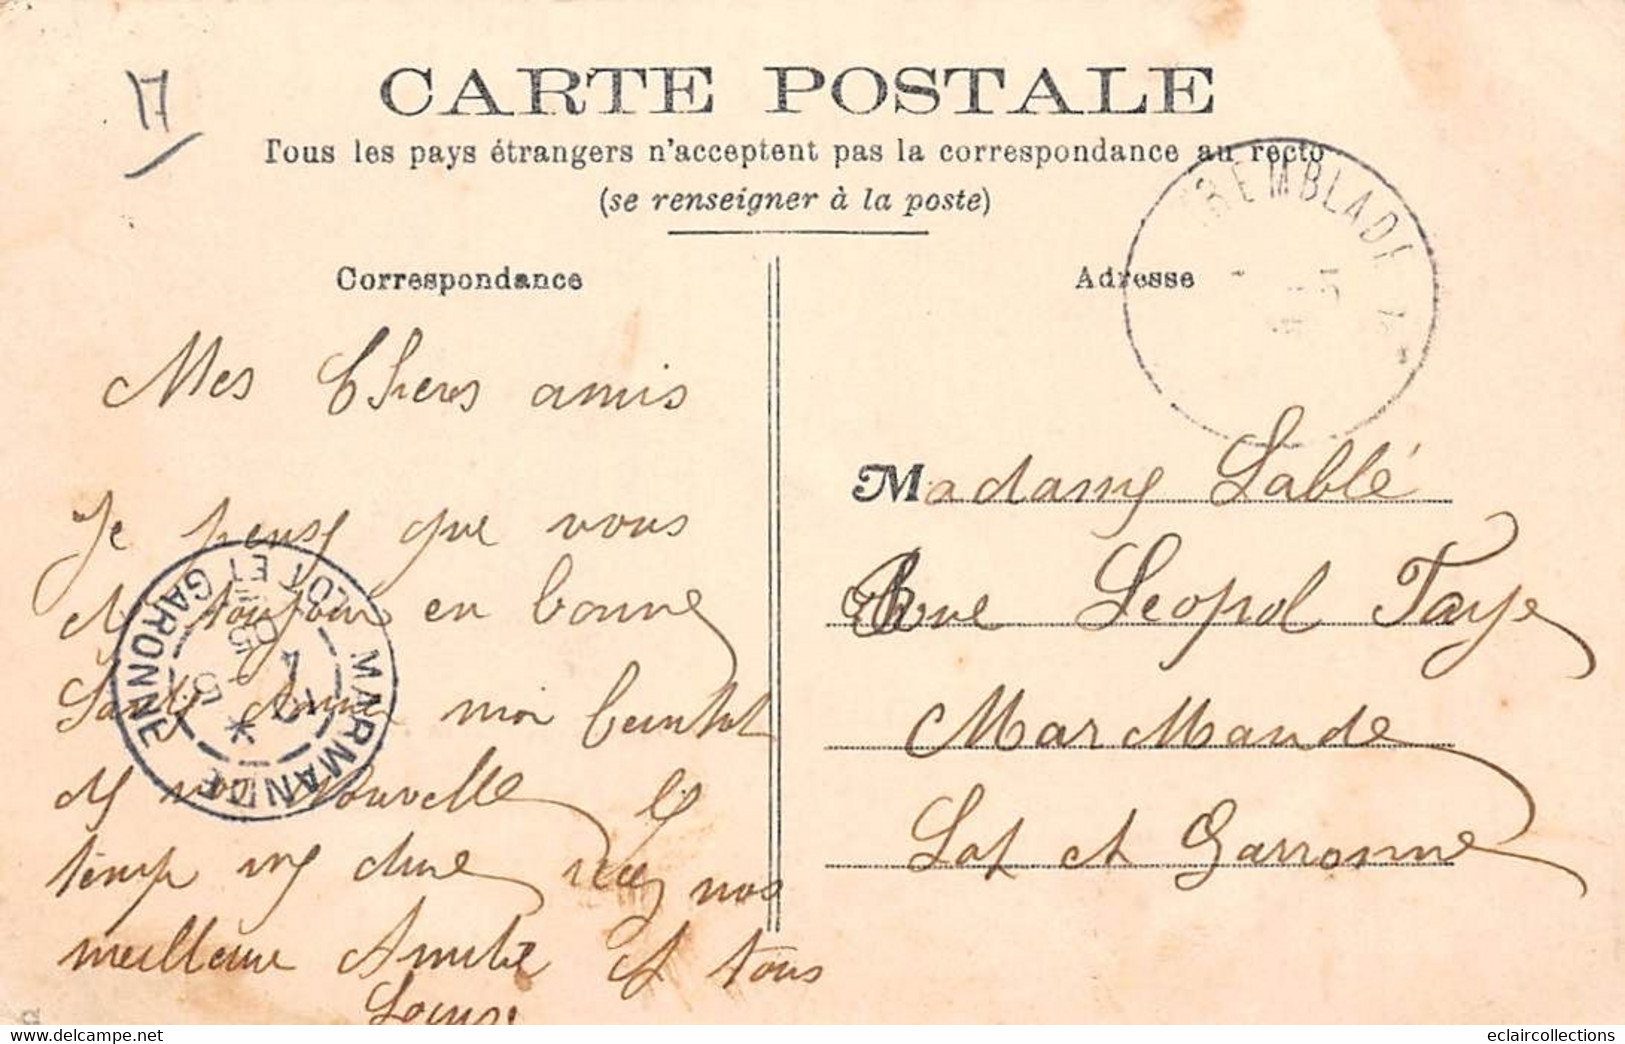 17
CARTE POSTALE
Tous les pays étrangers n'acceptent pas la correspondance au recto
(se renseigner à la poste)
Correspondance
Mes Cheres amis
Je pense que vous
et toujour en bonne
Santé Donne moi bientot
de vos Nouvelle le
temp me dure
nos
meilleure Amitié et tous
Louise
MARMANDE
LOT ET GARONNE
Adresse
TREMBLADE
Madame Lablé
Rue Leopol Faye
Mar Mande
Lot et Garronne
eclaircollections